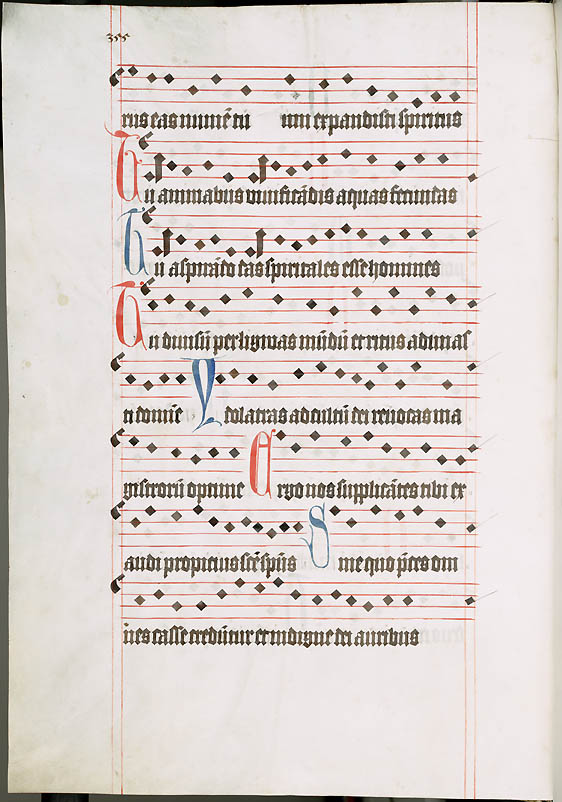 355
rus eas numē tu um expandisti spiritus
Tu animabus viuificādis aquas fecundas
Tu aspirādo das spiritales esse homines
Tu diuisū per linguas mūdū et ritus adunas
ti domīe Ydolatras ad cultū dei reuocas ma
gistrorū optime Ergo nos supplicātes tibi ex
audi propicius scē spūs Sine quo p̄ces om
nes casse credūtur et indigne dei auribus